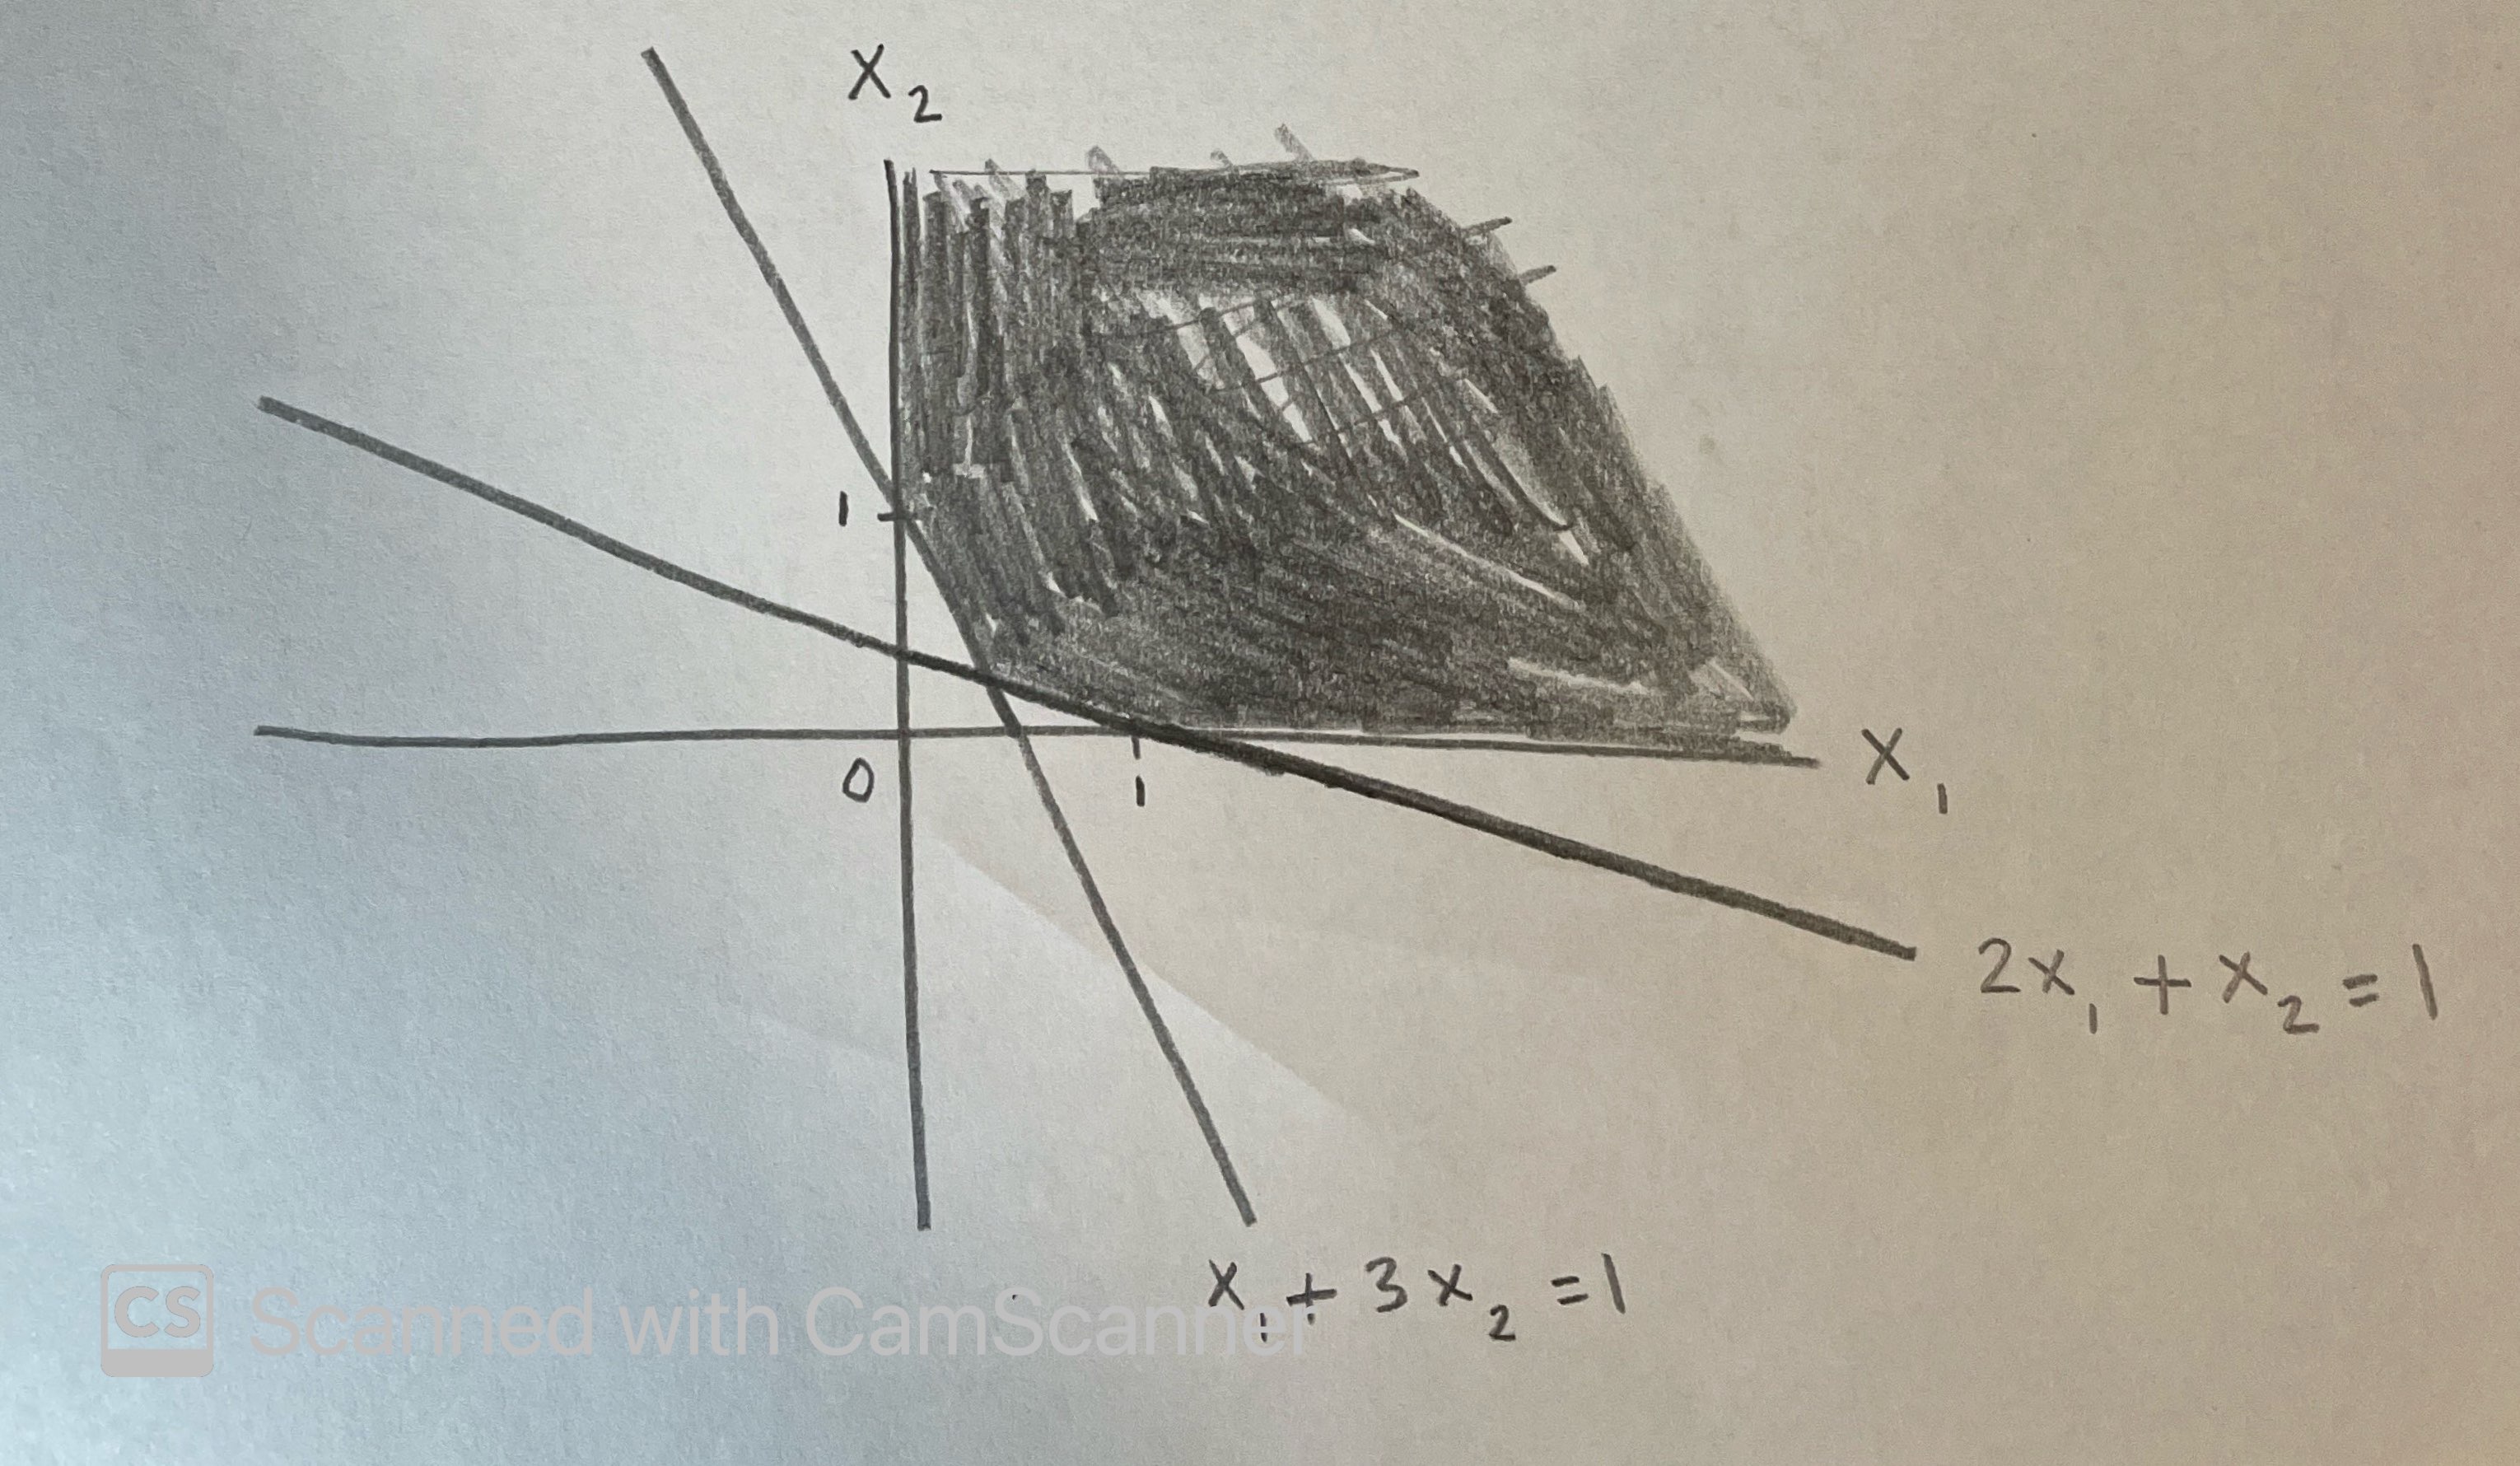 X₂
1
0
1
X₁
2x₁ + x₂ = 1
x₁ + 3x₂ = 1
CS Scanned with CamScanner